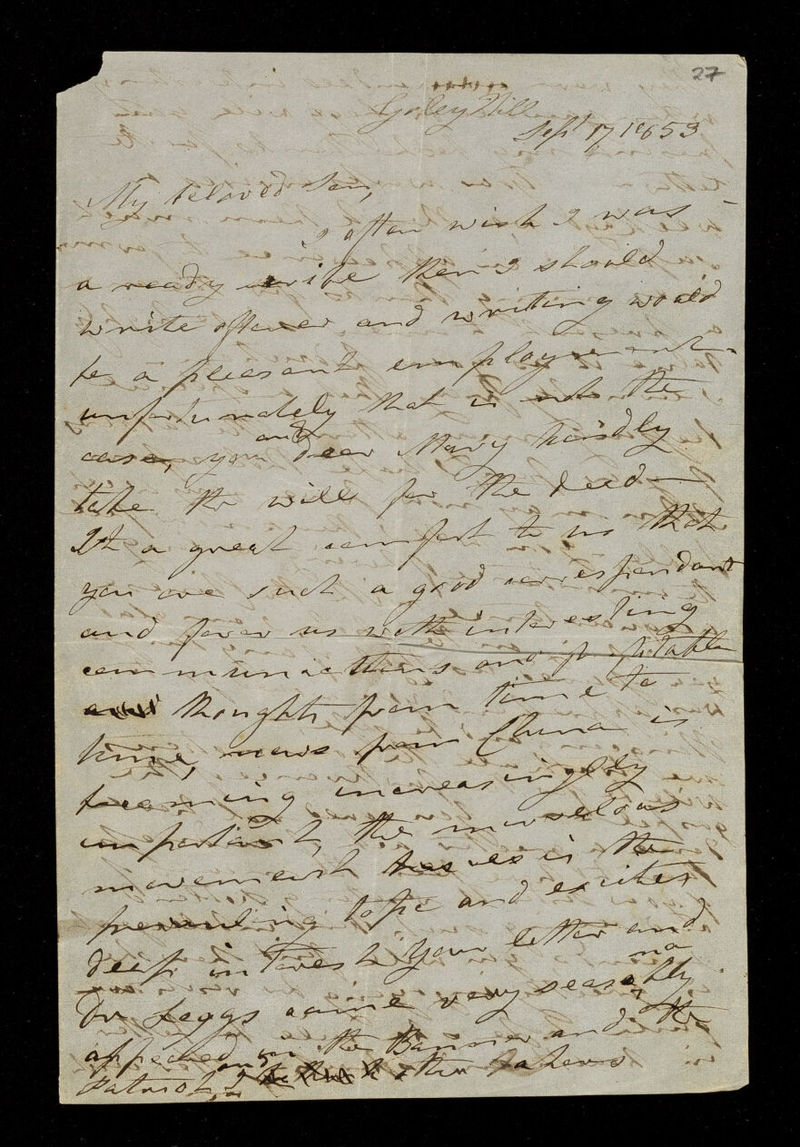 27
Goley Hill
Sept 17 1853
My beloved Son,
I often wish I was
a ready scribe then I should
write oftener and writing would
be a pleasant employment -
unfortunately that is not the
case, you and dear Mary kindly
take the will for the deed —
It a great comfort to us that
you are such a good correspondant
and favor us with interesting
communications and profitable
thoughts from time to
time, news from China is
becoming increasingly
important, the marvelous
movement is the
prevailing topic and excites
deep interest. Your letter and
Dr Leggs came very seasonably
appeared in the Banner and the
Patriot, and other papers